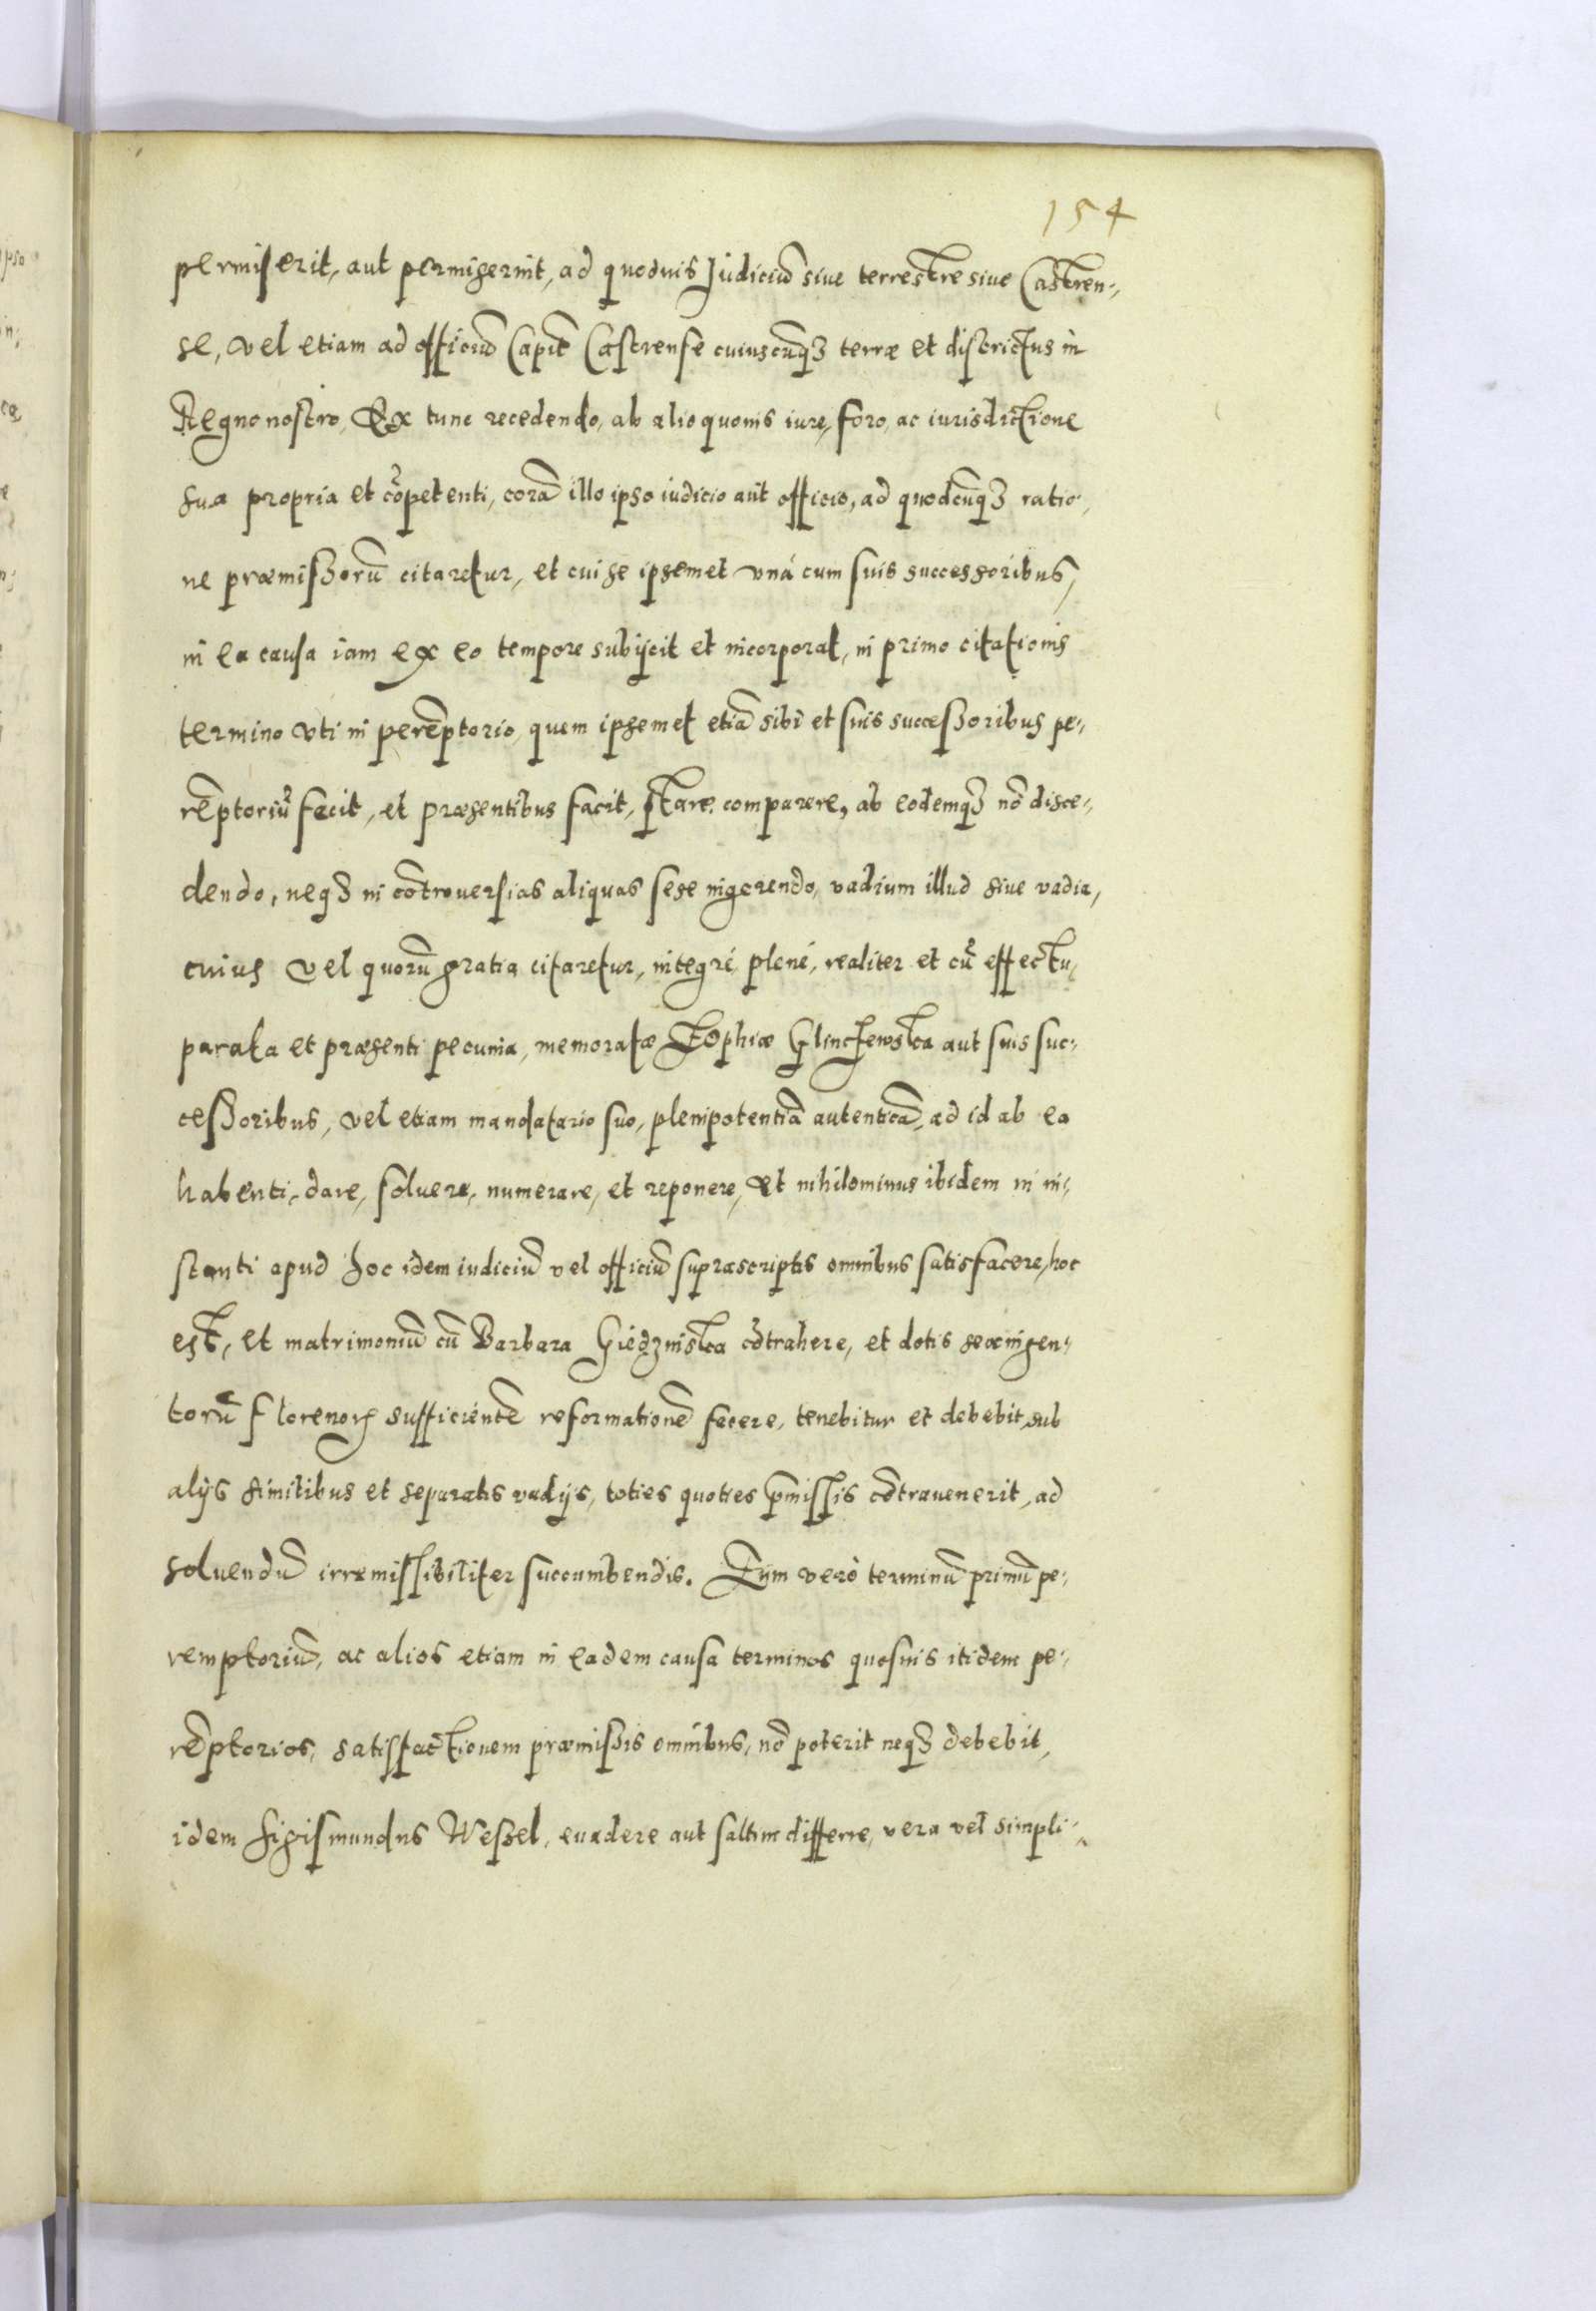 154
permiserit, aut permiserint, ad quoduis Judiciũ siue terrestre siue Castren-
se, vel etiam ad officiũ Capit Castrense cuiuscũqꝫ terræ et districtus in
Regno nostro, Ex tunc recedendo, ab alio quouis iure, foro, ac iurisdictione
sua propria et cõpetenti, corã illo ipso iudicio aut officio, ad quodcũqꝫ ratio-
ne præmissorũ citaretur, et cui se ipsemet vná cum suis successoribus,
in ea causa iam ex eo tempore subijcit et incorporat, in primo citationis
termino vti in perẽptorio, quem ipsemet etiã sibi et suis successoribus pe-
rẽptoriũ fecit, et præsentibus facit, stare, comparere, ab eodemqꝫ nõ disce-
dendo, neqꝫ in cõtrouersias aliquas sese ingerendo, vadium illud siue vadia,
cuius vel quorũ gratia citaretur, integré, plené, realiter et cũ effectu,
parata et præsenti pecunia, memoratæ Zophiæ Glinczewska aut suis suc-
cessoribus, vel etiam mandatario suo, plenipotentiã autenticã, ad id ab ea
habenti, dare, soluere, numerare, et reponere, et nihilominus ibidem in in-
stanti apud hoc idem iudiciũ vel officiũ suprascriptis omnibus satisfacere, hoc
est, et matrimoniũ cũ Barbara Giedzinska cõtrahere, et dotis sexingen-
torũ florenorꝝ sufficientẽ reformationẽ facere, tenebitur et debebit, sub
alijs similibus et separatis vadijs, toties quoties p̃missis cõtrauenerit, ad
soluendũ irremissibiliter succumbendis. Eum verò terminũ primũ pe-
remptoriũ, ac alios etiam in eadem causa terminos quosuis itidem pe-
rẽptorios, satisfactionem præmissis omnibus, nõ poterit neqꝫ debebit,
idem Sigismundus Wessel, euadere aut saltim differre, vera vel simpli-